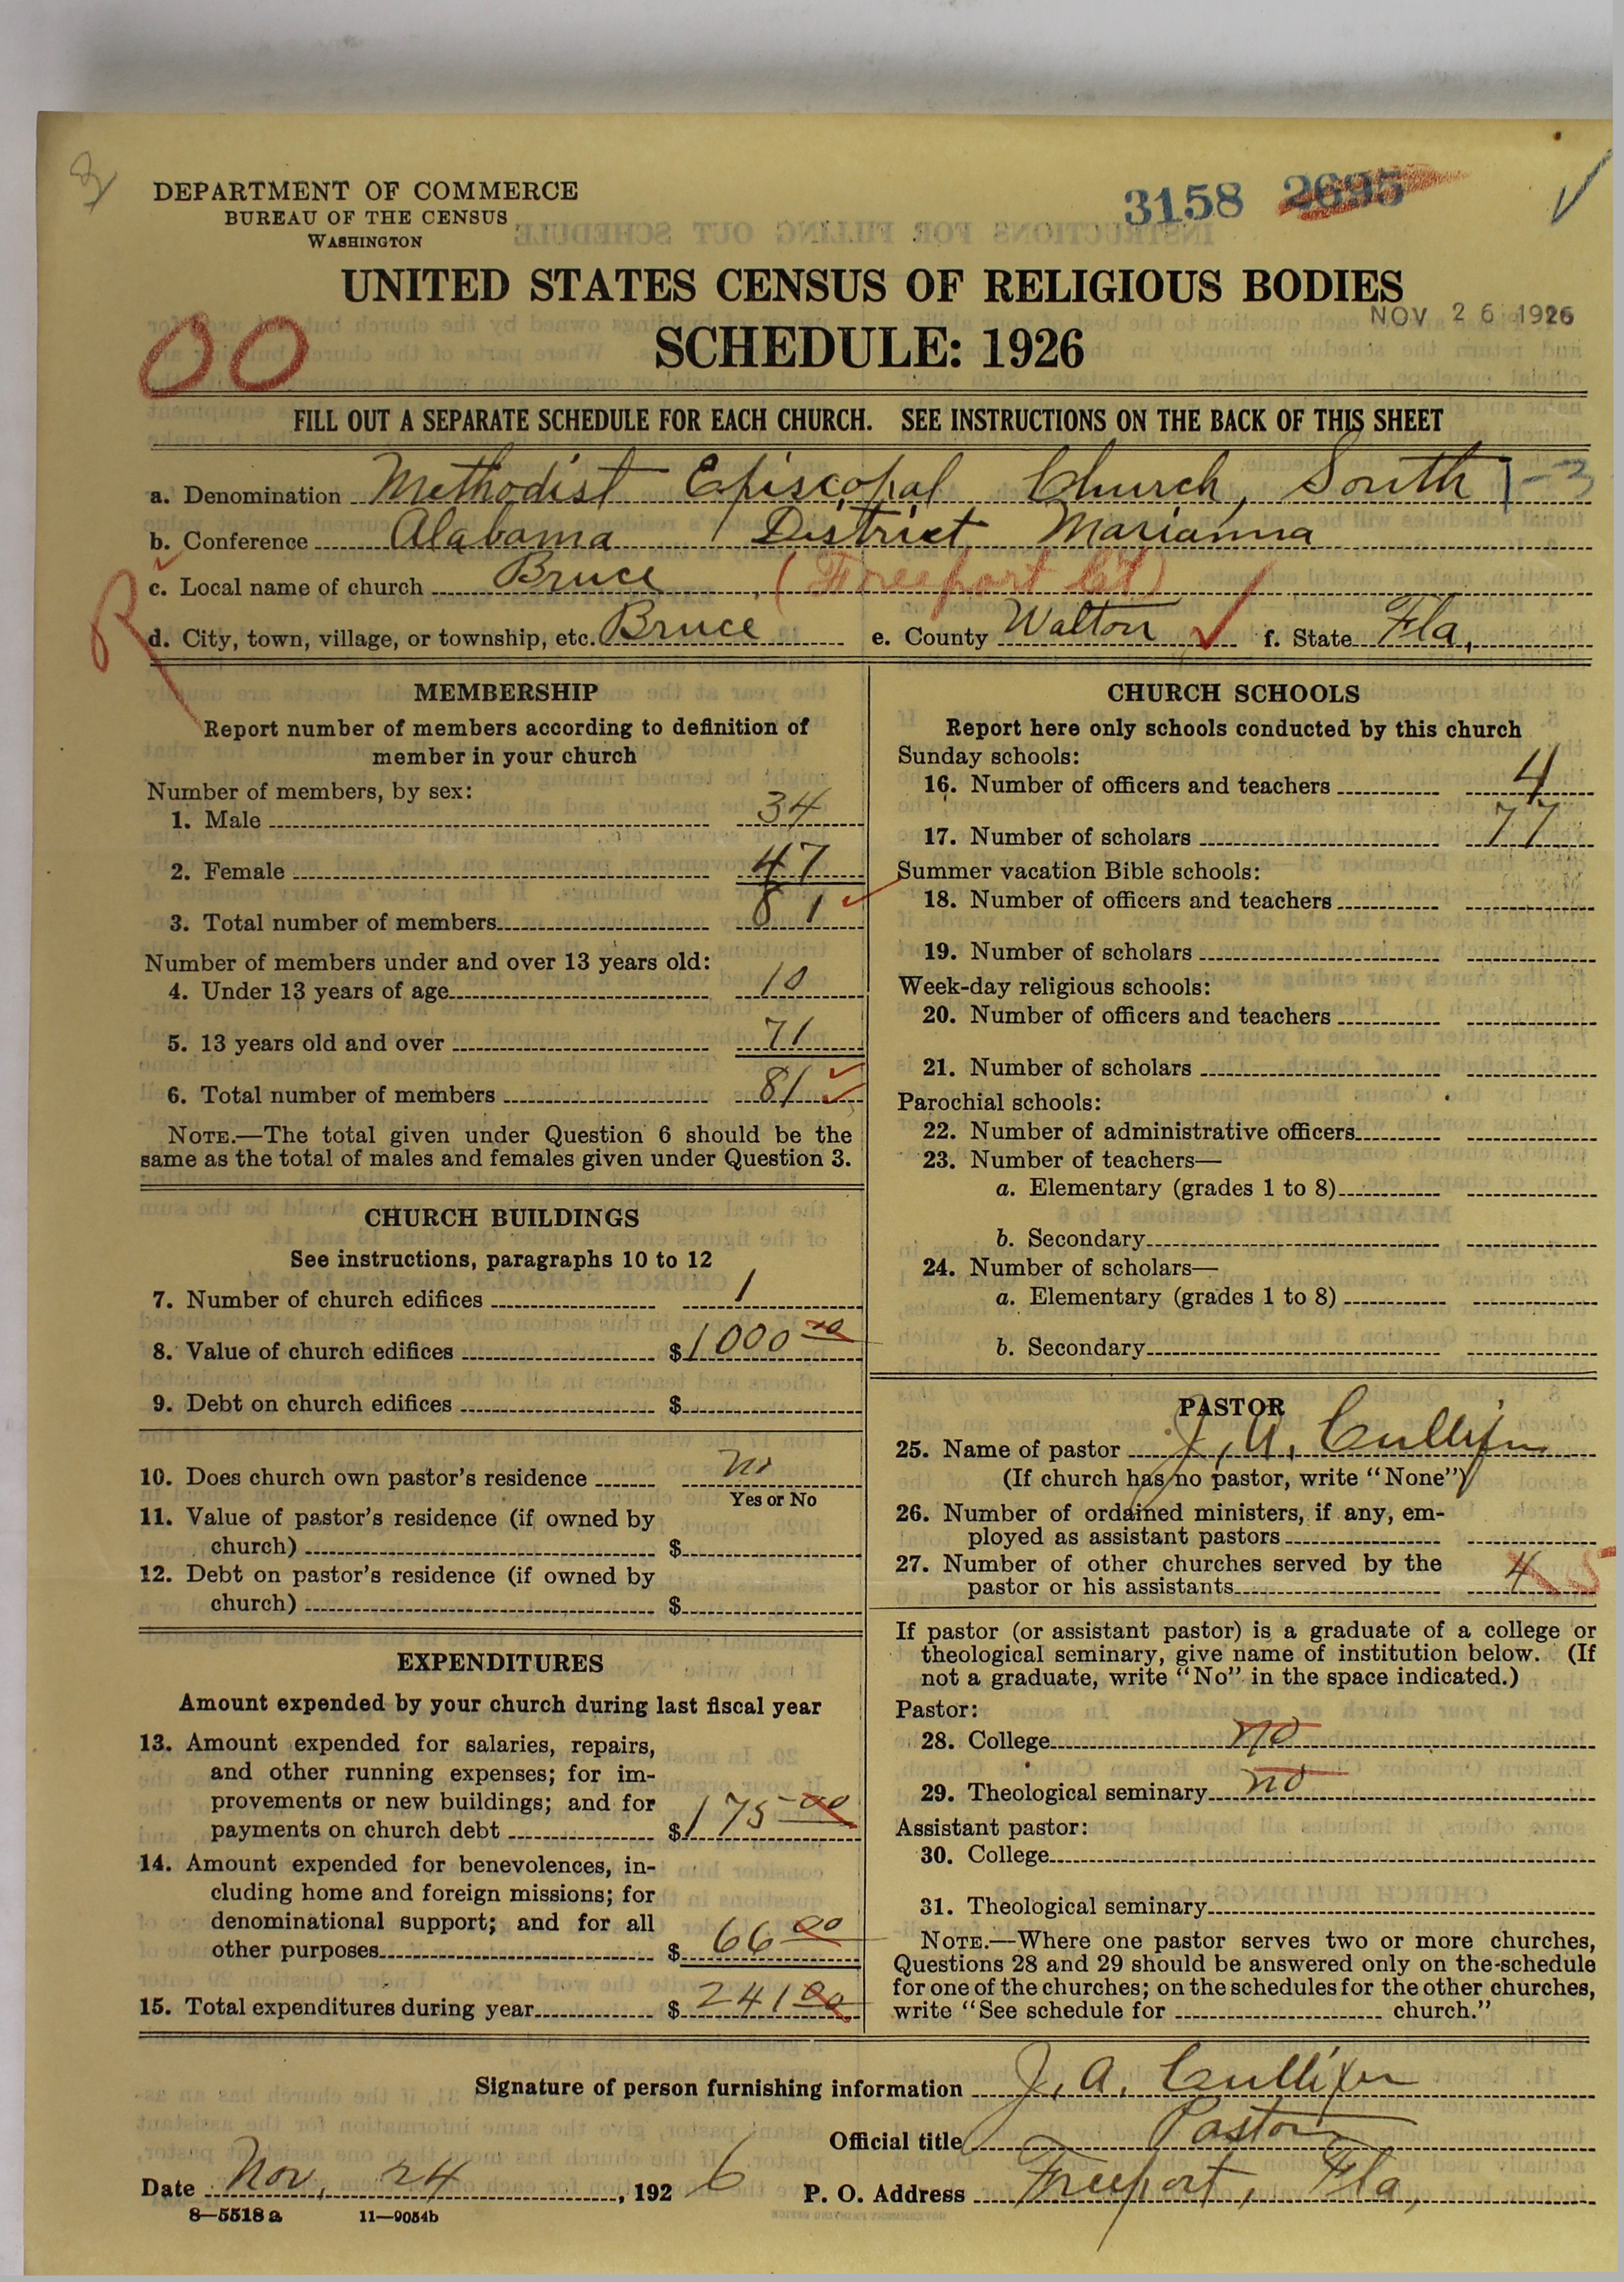 DEPARTMENT OF COMMERCE
BUREAU OF THE CENSUS
WASHINGTON
3158 2695
UNITED STATES CENSUS OF RELIGIOUS BODIES
NOV 26 1926
SCHEDULE: 1926
00
FILL OUT A SEPARATE SCHEDULE FOR EACH CHURCH. SEE INSTRUCTIONS ON THE BACK OF THIS SHEET
a. Denomination Methodist Episcopal Church, South 1-3
b. Conference Alabama District Marianna
c. Local name of church Bruce, (Freeport Ct)
R
d. City, town, village, or township, etc. Bruce e. County Walton f. State Fla,
MEMBERSHIP
Report number of members according to definition of
member in your church
Number of members, by sex:
1. Male 34
2. Female 47
3. Total number of members 81
Number of members under and over 13 years old:
4. Under 13 years of age 10
5. 13 years old and over 71
6. Total number of members 81
NOTE.—The total given under Question 6 should be the
same as the total of males and females given under Question 3.
CHURCH BUILDINGS
See instructions, paragraphs 10 to 12
7. Number of church edifices 1
8. Value of church edifices $1000 00
9. Debt on church edifices $
10. Does church own pastor's residence no
Yes or No
11. Value of pastor's residence (if owned by
church) $
12. Debt on pastor's residence (if owned by
church) $
EXPENDITURES
Amount expended by your church during last fiscal year
13. Amount expended for salaries, repairs,
and other running expenses; for im-
provements or new buildings; and for
payments on church debt $175 00
14. Amount expended for benevolences, in-
cluding home and foreign missions; for
denominational support; and for all
other purposes $66 00
15. Total expenditures during year $241 00
CHURCH SCHOOLS
Report here only schools conducted by this church
Sunday schools:
16. Number of officers and teachers 4
17. Number of scholars 77
Summer vacation Bible schools:
18. Number of officers and teachers
19. Number of scholars
Week-day religious schools:
20. Number of officers and teachers
21. Number of scholars
Parochial schools:
22. Number of administrative officers
23. Number of teachers—
a. Elementary (grades 1 to 8)
b. Secondary
24. Number of scholars—
a. Elementary (grades 1 to 8)
b. Secondary
PASTOR
25. Name of pastor J. A. Cullifer
(If church has no pastor, write "None")
26. Number of ordained ministers, if any, em-
ployed as assistant pastors
27. Number of other churches served by the
pastor or his assistants 4 5
If pastor (or assistant pastor) is a graduate of a college or
theological seminary, give name of institution below. (If
not a graduate, write "No" in the space indicated.)
Pastor:
28. College no
29. Theological seminary no
Assistant pastor:
30. College
31. Theological seminary
NOTE.—Where one pastor serves two or more churches,
Questions 28 and 29 should be answered only on the schedule
for one of the churches; on the schedules for the other churches,
write "See schedule for church."
Signature of person furnishing information J. A. Cullifer
Official title Pastor
Date Nov. 24, 1926 P. O. Address Freeport, Fla,
8—5518 a 11—9054b